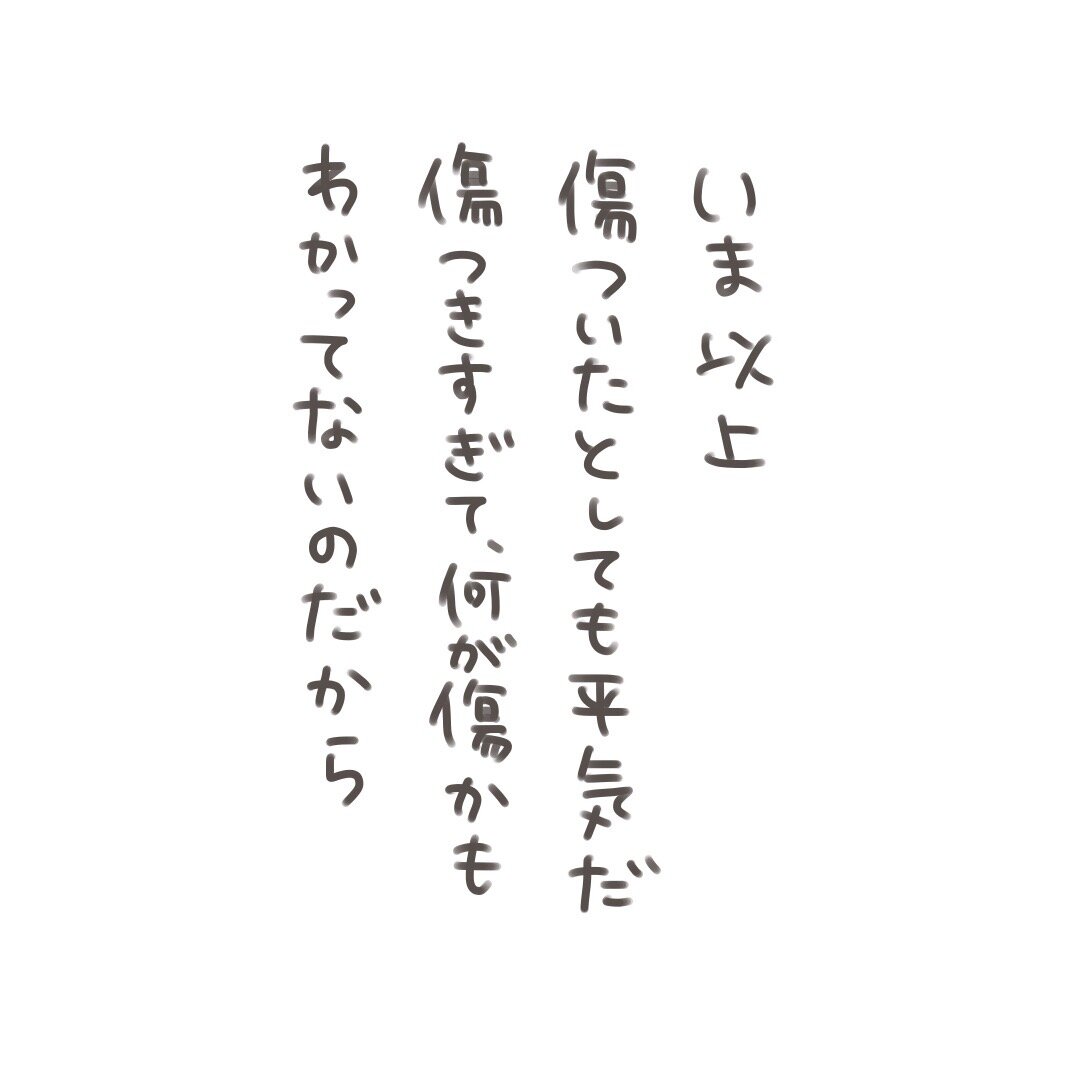 いま以上
傷ついたとしても平気だ
傷つきすぎて、何が傷かも
わかってないのだから